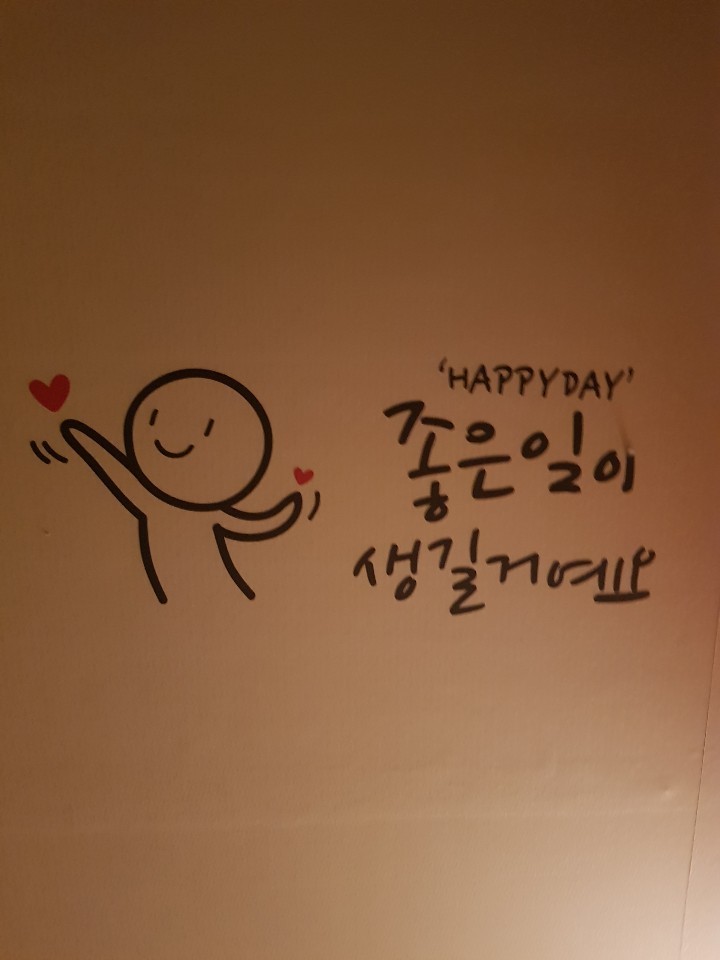 'HAPPYDAY'
좋은일이
생길거예요